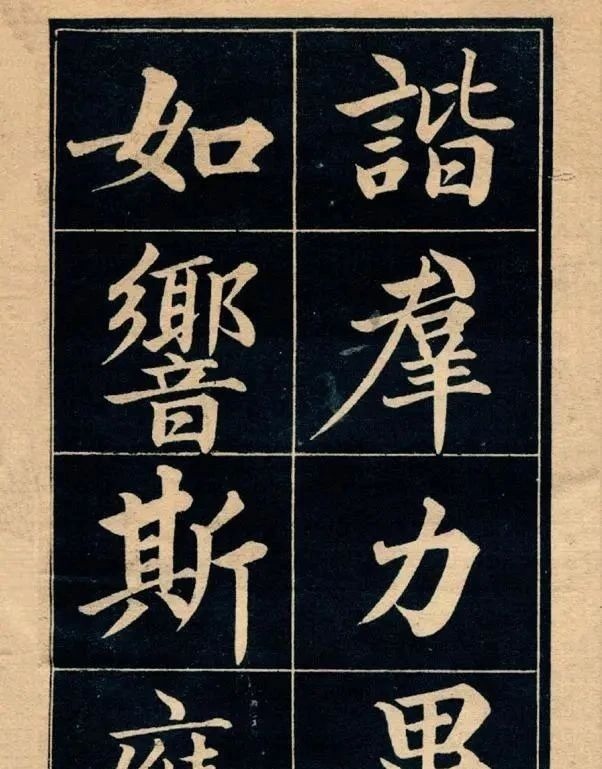 諧羣力
如響斯應